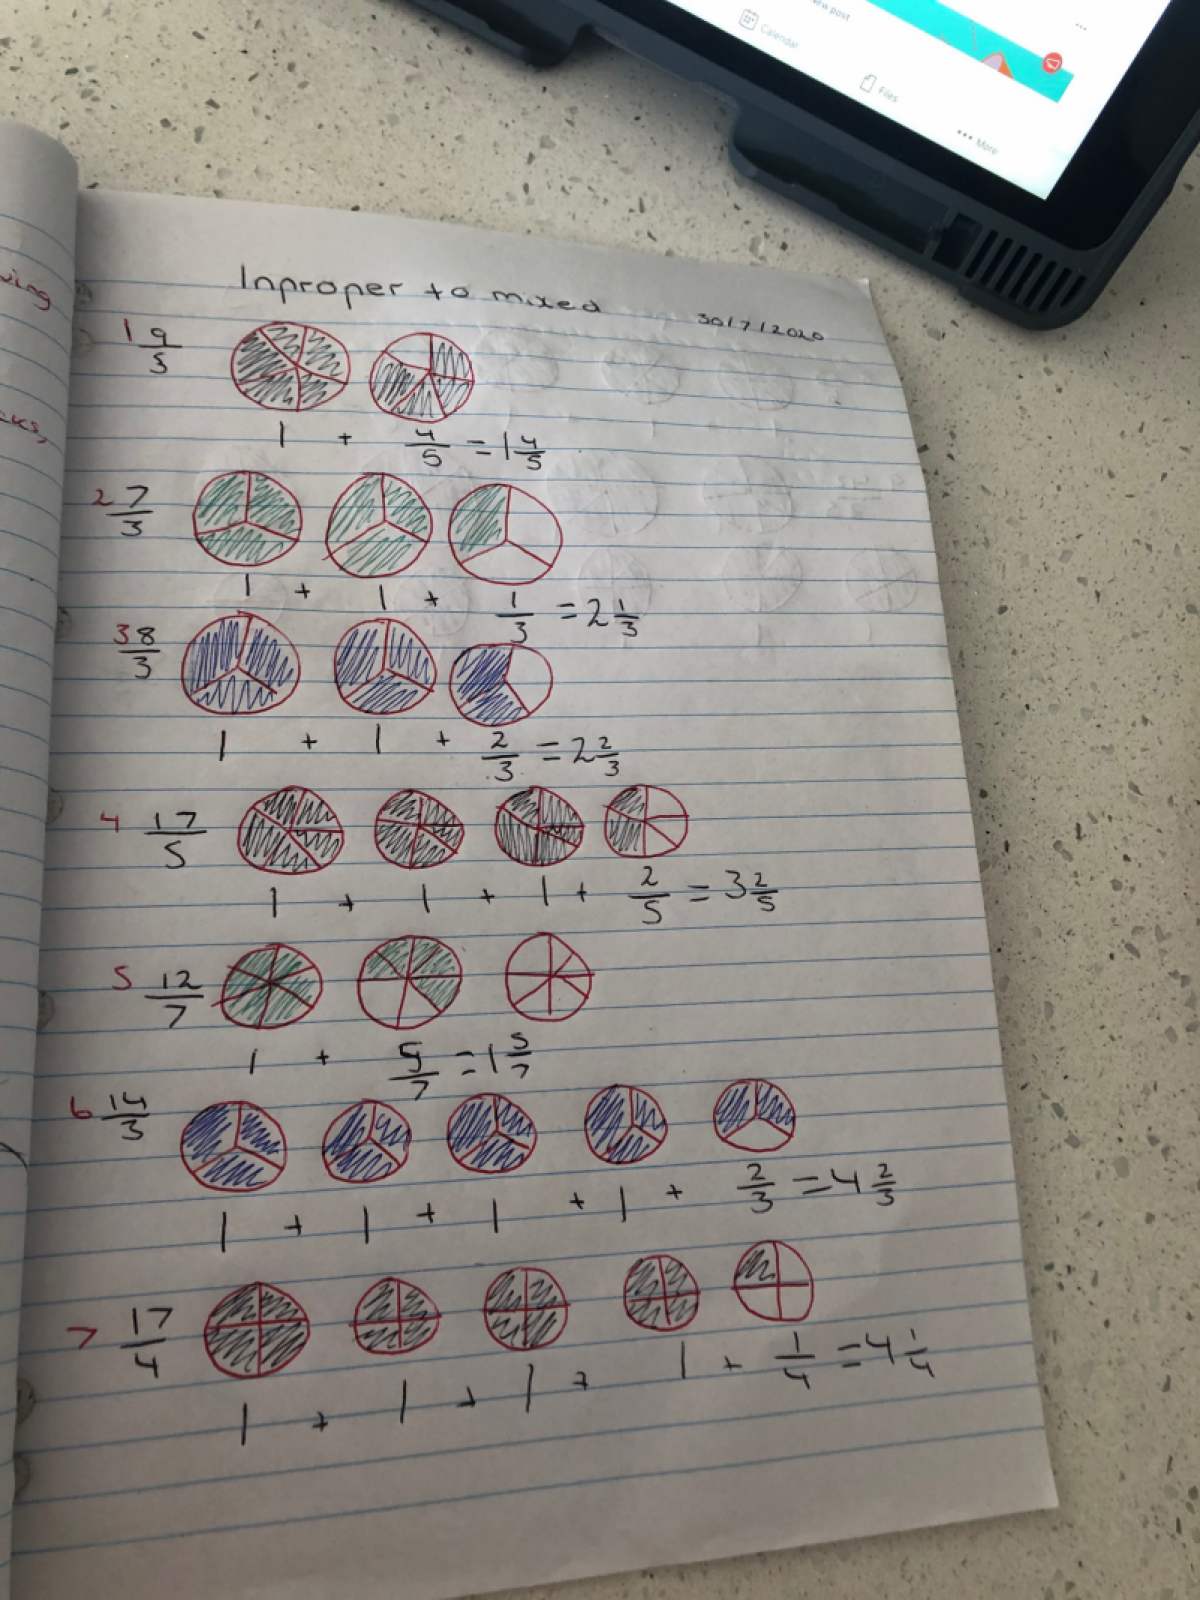 New post
Calendar
Files
More
Inproper to mixed 30/7/2020
1 9/5
1 + 4/5 = 1 4/5
2 7/3
1 + 1 + 1/3 = 2 1/3
3 8/3
1 + 1 + 2/3 = 2 2/3
4 17/5
1 + 1 + 1 + 2/5 = 3 2/5
5 12/7
1 + 5/7 = 1 5/7
6 14/3
1 + 1 + 1 + 1 + 2/3 = 4 2/3
7 17/4
1 + 1 + 1 + 1 + 1/4 = 4 1/4